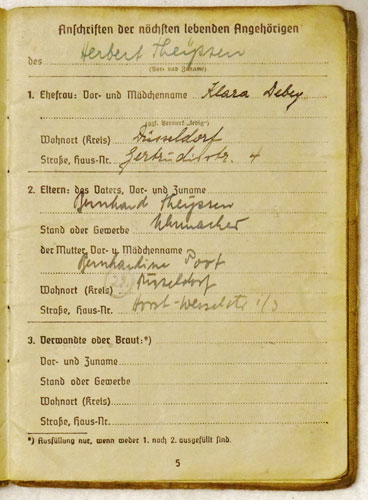 Anschriften der nächsten lebenden Angehörigen
des Herbert Theyssen
(Vor- und Zuname)
1. Ehefrau: Vor- und Mädchenname Klara Debey
(ggf. Vermerk „ledig“)
Wohnort (Kreis) Düsseldorf
Straße, Haus-Nr. Gertrudisstr. 4
2. Eltern: des Vaters, Vor- und Zuname
Bernhard Theyssen
Stand oder Gewerbe Uhrmacher
der Mutter, Vor- u. Mädchenname
Bernhardine Post
Wohnort (Kreis) Düsseldorf
Straße, Haus-Nr. Horst-Wesselstr
3. Verwandte oder Braut:*)
Vor- und Zuname
Stand oder Gewerbe
Wohnort (Kreis)
Straße, Haus-Nr.
*) Ausfüllung nur, wenn weder 1. noch 2. ausgefüllt sind.
5